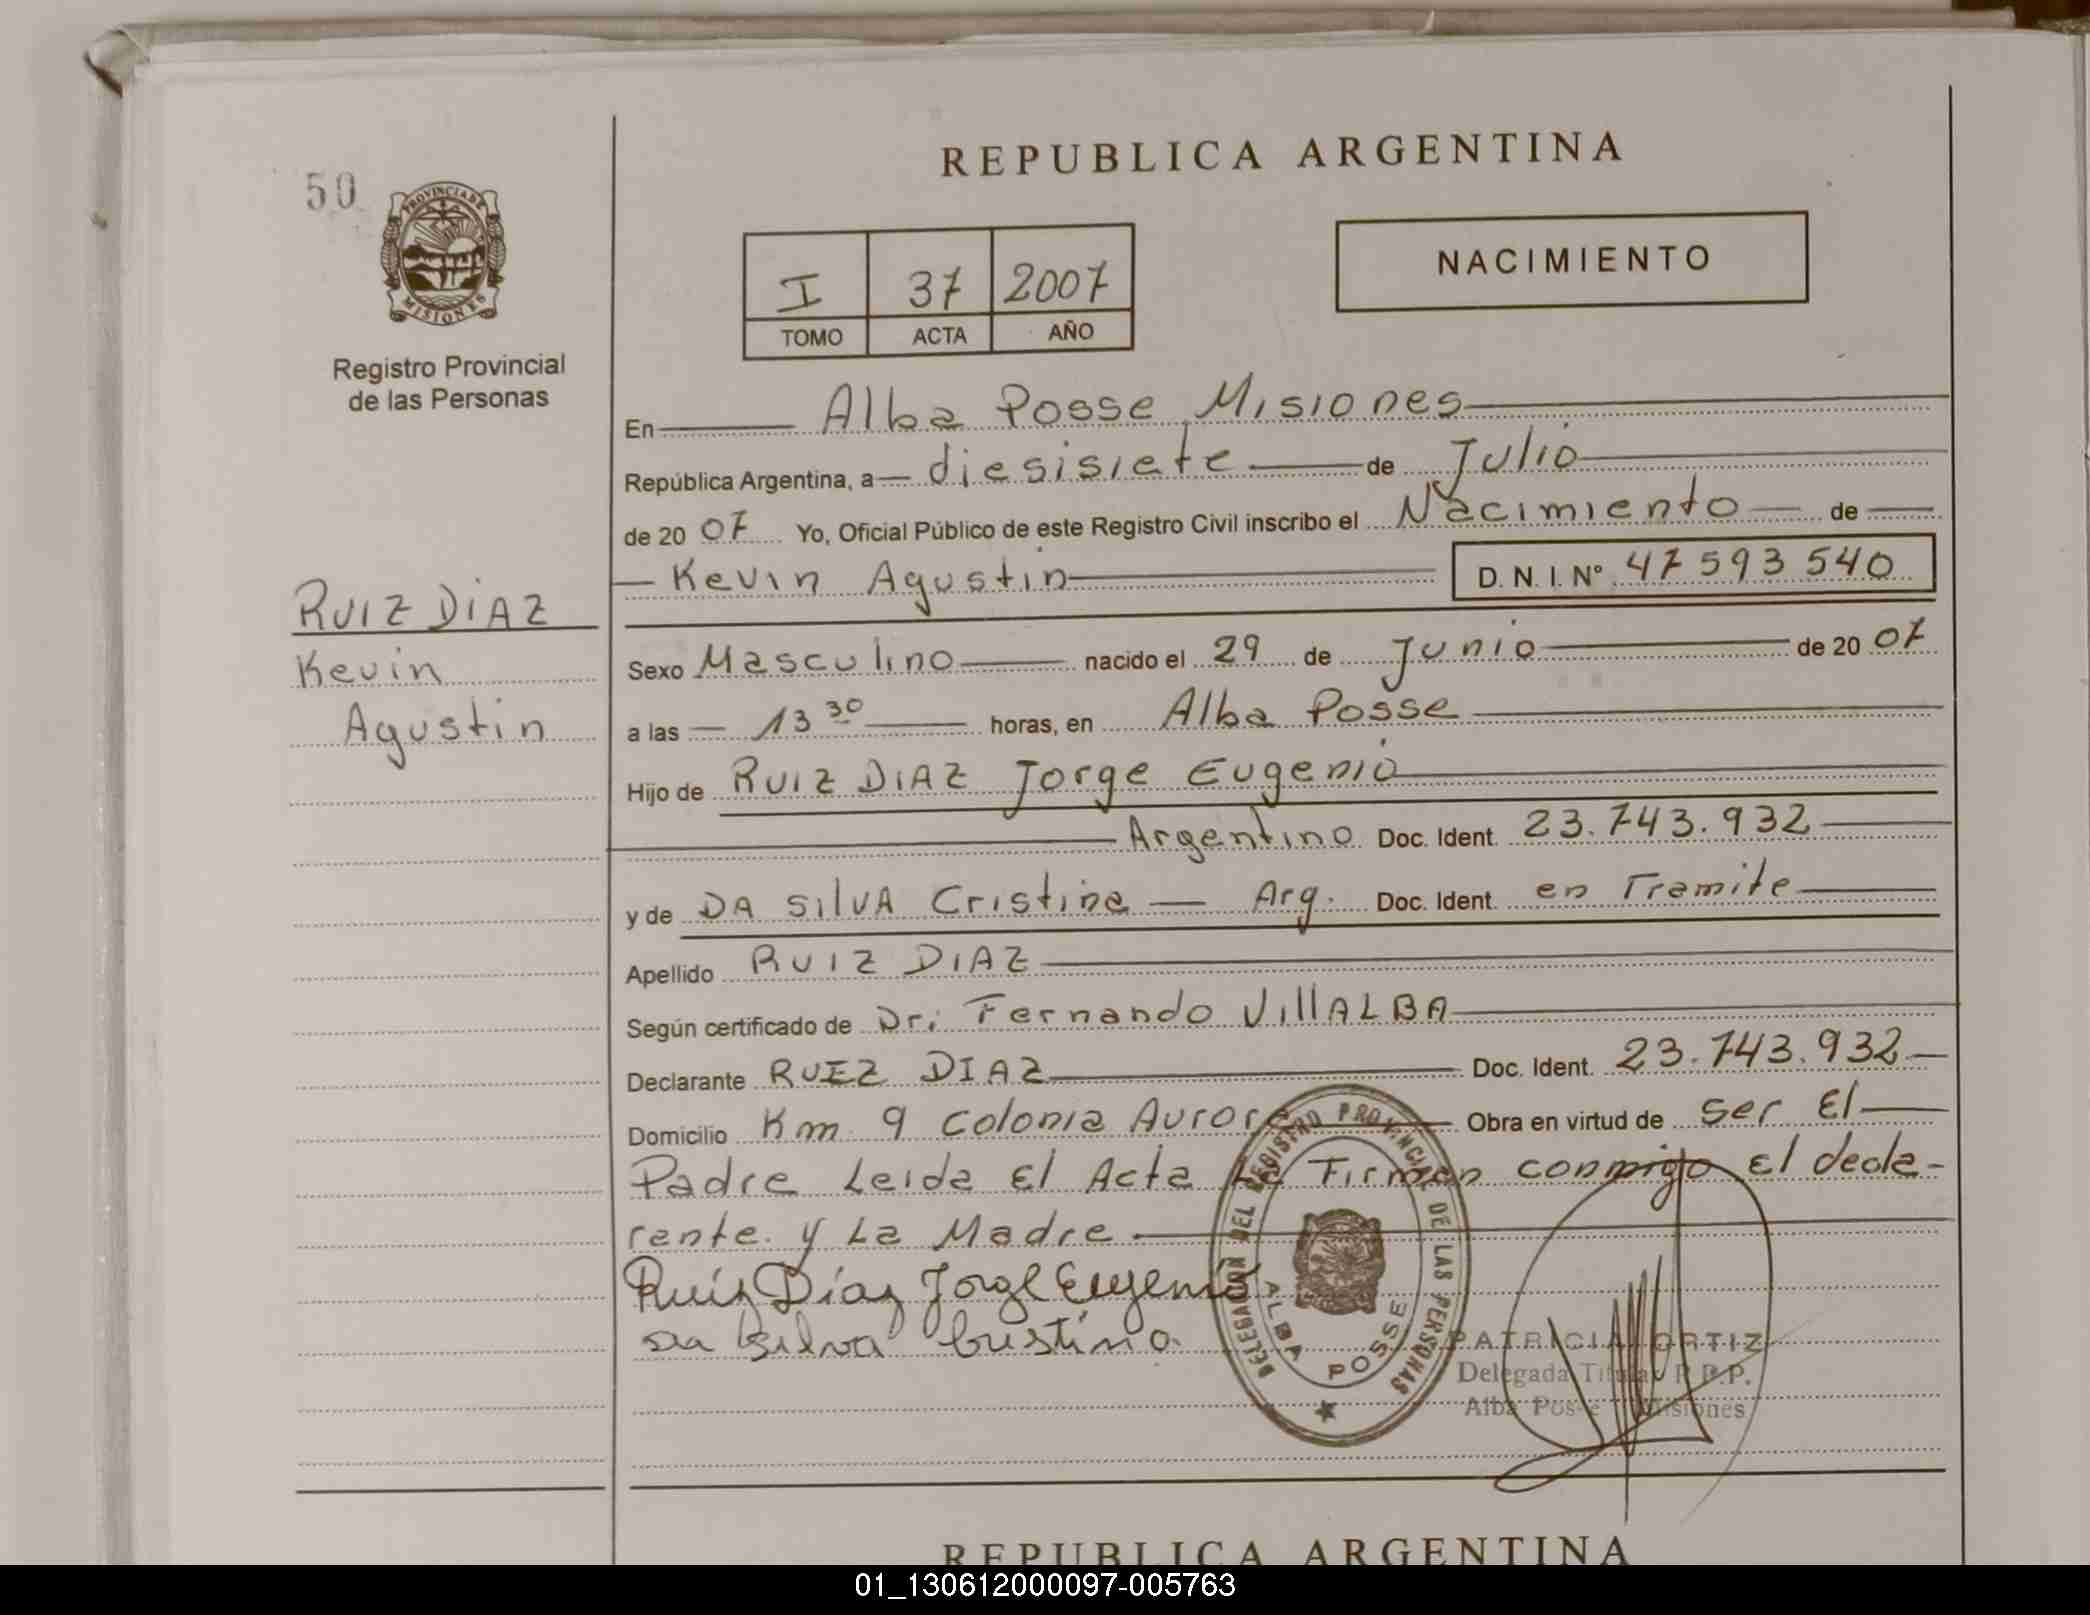 REPUBLICA ARGENTINA
50
PROVINCIA DE MISIONES
Registro Provincial
de las Personas
I 37 2007
TOMO ACTA AÑO
NACIMIENTO
En Alba Posse Misiones
República Argentina, a diesisiete de Julio
de 20 07 Yo, Oficial Público de este Registro Civil inscribo el Nacimiento de
Kevin Agustin D. N. I. Nº 47 593 540
RUIZ DIAZ
Kevin
Agustin
Sexo Masculino nacido el 29 de Junio de 20 07
a las 13 30 horas, en Alba Posse
Hijo de RUIZ DIAZ Jorge Eugenio
Argentino Doc. Ident. 23.743.932
y de DA SilVA Cristina Arg. Doc. Ident. en Tramite
Apellido RUIZ DIAZ
Según certificado de Dr: Fernando VillALBA
Declarante RUEZ DIAZ Doc. Ident. 23.743.932
Domicilio Km 9 Colonia Aurora Obra en virtud de ser El
Padre Leida El Acta La Firman conmigo El decla-
rante y La Madre
Ruiz Díaz Jorge Eugenio
Da Silva Cristina
DELEGACION DEL REGISTRO PROVINCIAL DE LAS PERSONAS
ALBA POSSE
PATRICIA ORTIZ
Delegada Titular R.P.P.
Alba Posse Misiones
REPUBLICA ARGENTINA
01_130612000097-005763